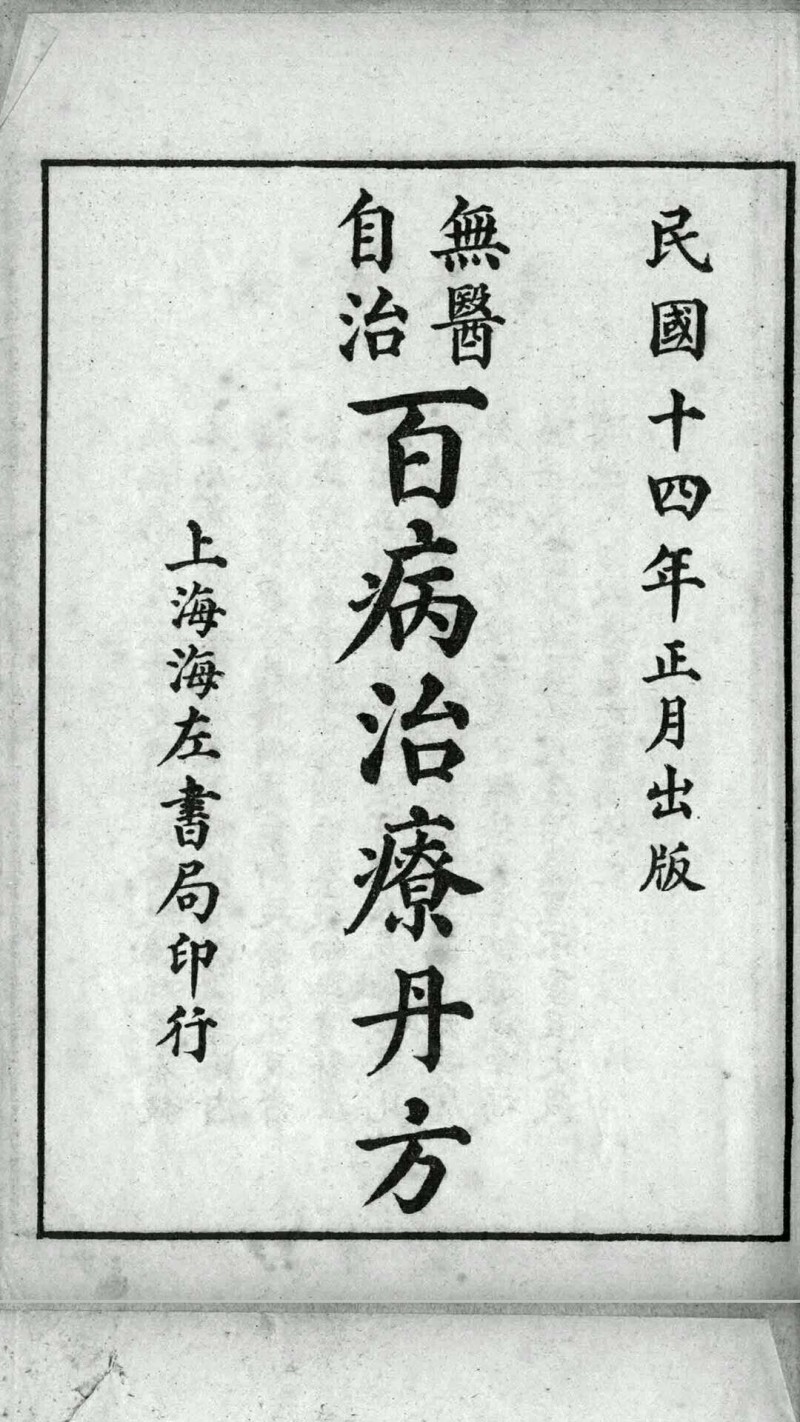 民國十四年正月出版
無醫
自治
百病治療丹方
上海海左書局印行